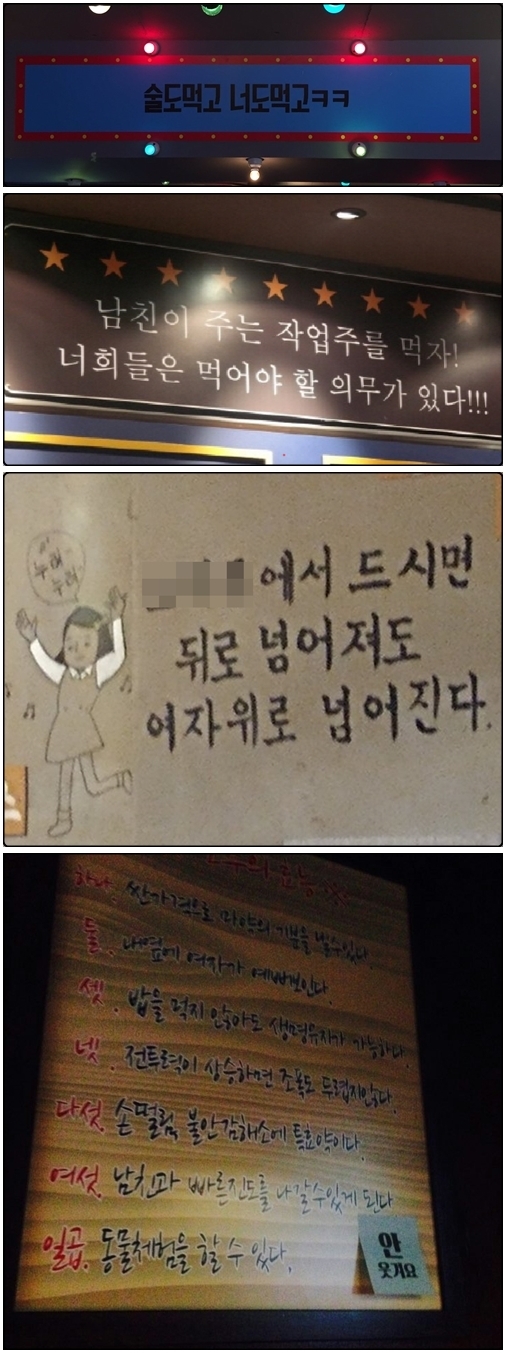 술도먹고 너도먹고ㅋㅋ
남친이 주는 작업주를 먹자!
너희들은 먹어야 할 의무가 있다!!!
누려
누려
에서 드시면
뒤로 넘어져도
여자위로 넘어진다.
의 효능
하나. 싼가격으로 마약의 기분을 낼수있다.
둘. 내옆에 여자가 예뻐보인다.
셋. 밥을 먹지 않아도 생명유지가 가능하다.
넷. 전투력이 상승하면 조폭도 두렵지않다.
다섯. 손떨림, 불안감해소에 특효약이다.
여섯. 남친과 빠른진도를 나갈수있게 된다
일곱. 동물체험을 할 수 있다.
안
웃겨요